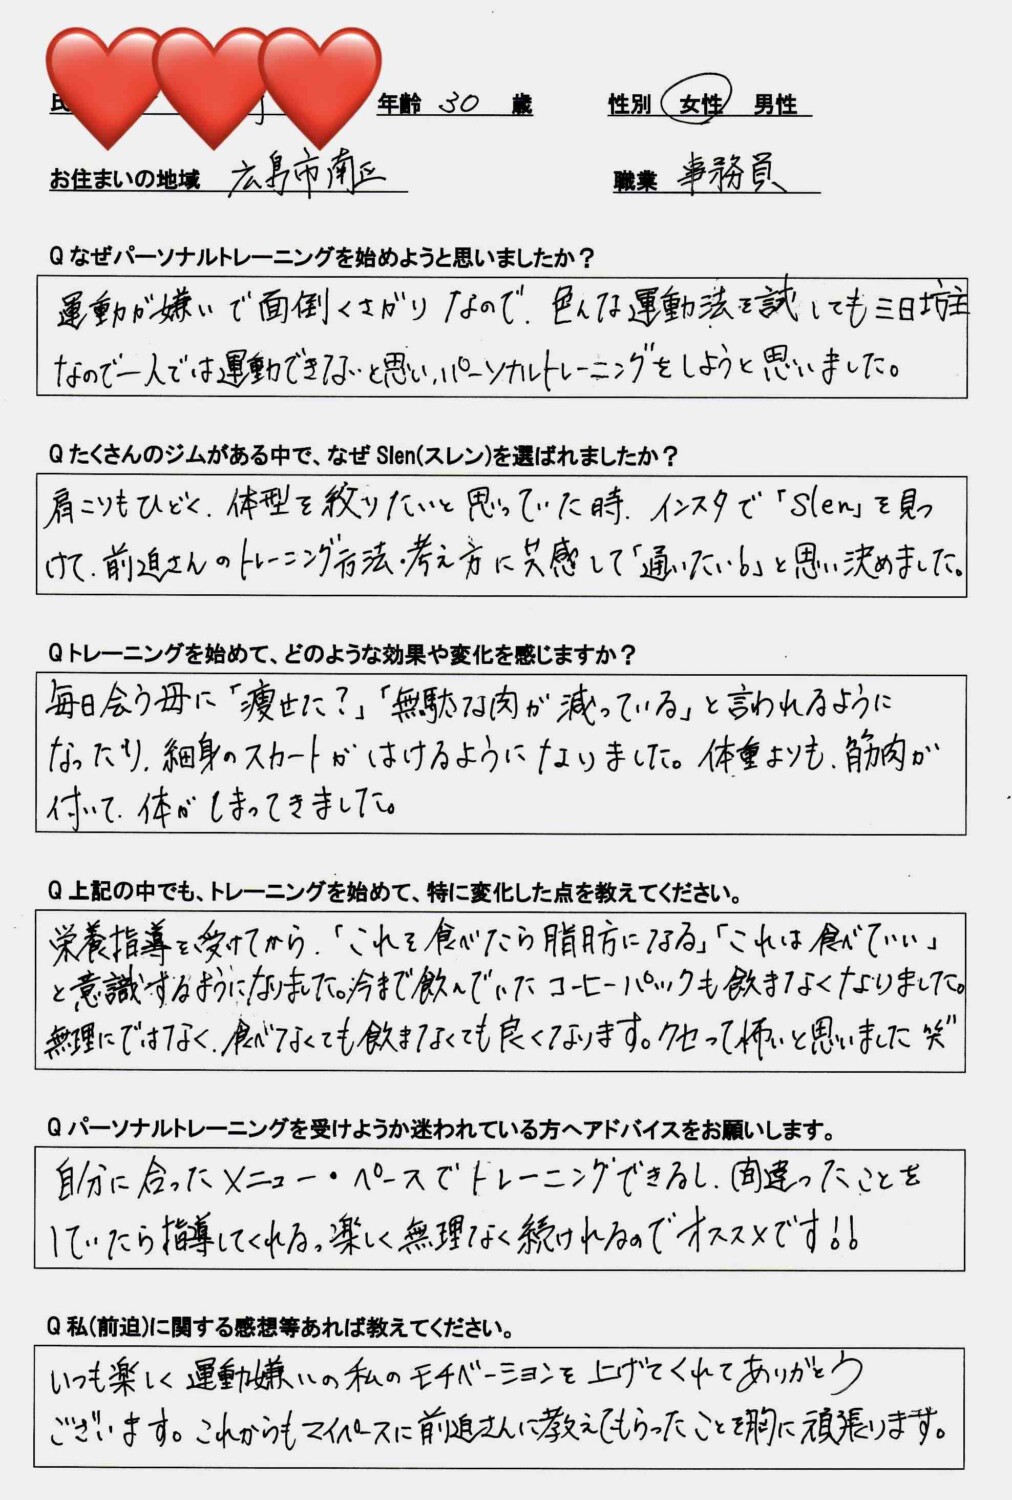 年齢 30 歳 性別 女性 男性
お住まいの地域 広島市南区 職業 事務員
Q なぜパーソナルトレーニングを始めようと思いましたか？
運動が嫌いで面倒くさがりなので、色んな運動法を試しても三日坊主
なので一人では運動できないと思い、パーソナルトレーニングをしようと思いました。
Q たくさんのジムがある中で、なぜ Slen(スレン)を選ばれましたか？
肩こりもひどく、体型を絞りたいと思っていた時、インスタで「Slen」を見つ
けて、前迫さんのトレーニング方法・考え方に共感して「通いたい!」と思い決めました。
Q トレーニングを始めて、どのような効果や変化を感じますか？
毎日会う母に「痩せた?」「無駄な肉が減っている」と言われるように
なったり、細身のスカートがはけるようになりました。体重よりも、筋肉が
付いて、体がしまってきました。
Q 上記の中でも、トレーニングを始めて、特に変化した点を教えてください。
栄養指導を受けてから、「これを食べたら脂肪になる」「これは食べていい」
と意識するようになりました。今まで飲んでいたコーヒーパックも飲まなくなりました。
無理にではなく、食べなくても飲まなくても良くなります。クセって怖いと思いました笑
Q パーソナルトレーニングを受けようか迷われている方へアドバイスをお願いします。
自分に合ったメニュー・ペースでトレーニングできるし、間違ったことを
していたら指導してくれる。楽しく無理なく続けれるのでオススメです!!
Q 私(前迫)に関する感想等あれば教えてください。
いつも楽しく運動嫌いの私のモチベーションを上げてくれてありがとう
ございます。これからもマイペースに前迫さんに教えてもらったことを胸に頑張ります。